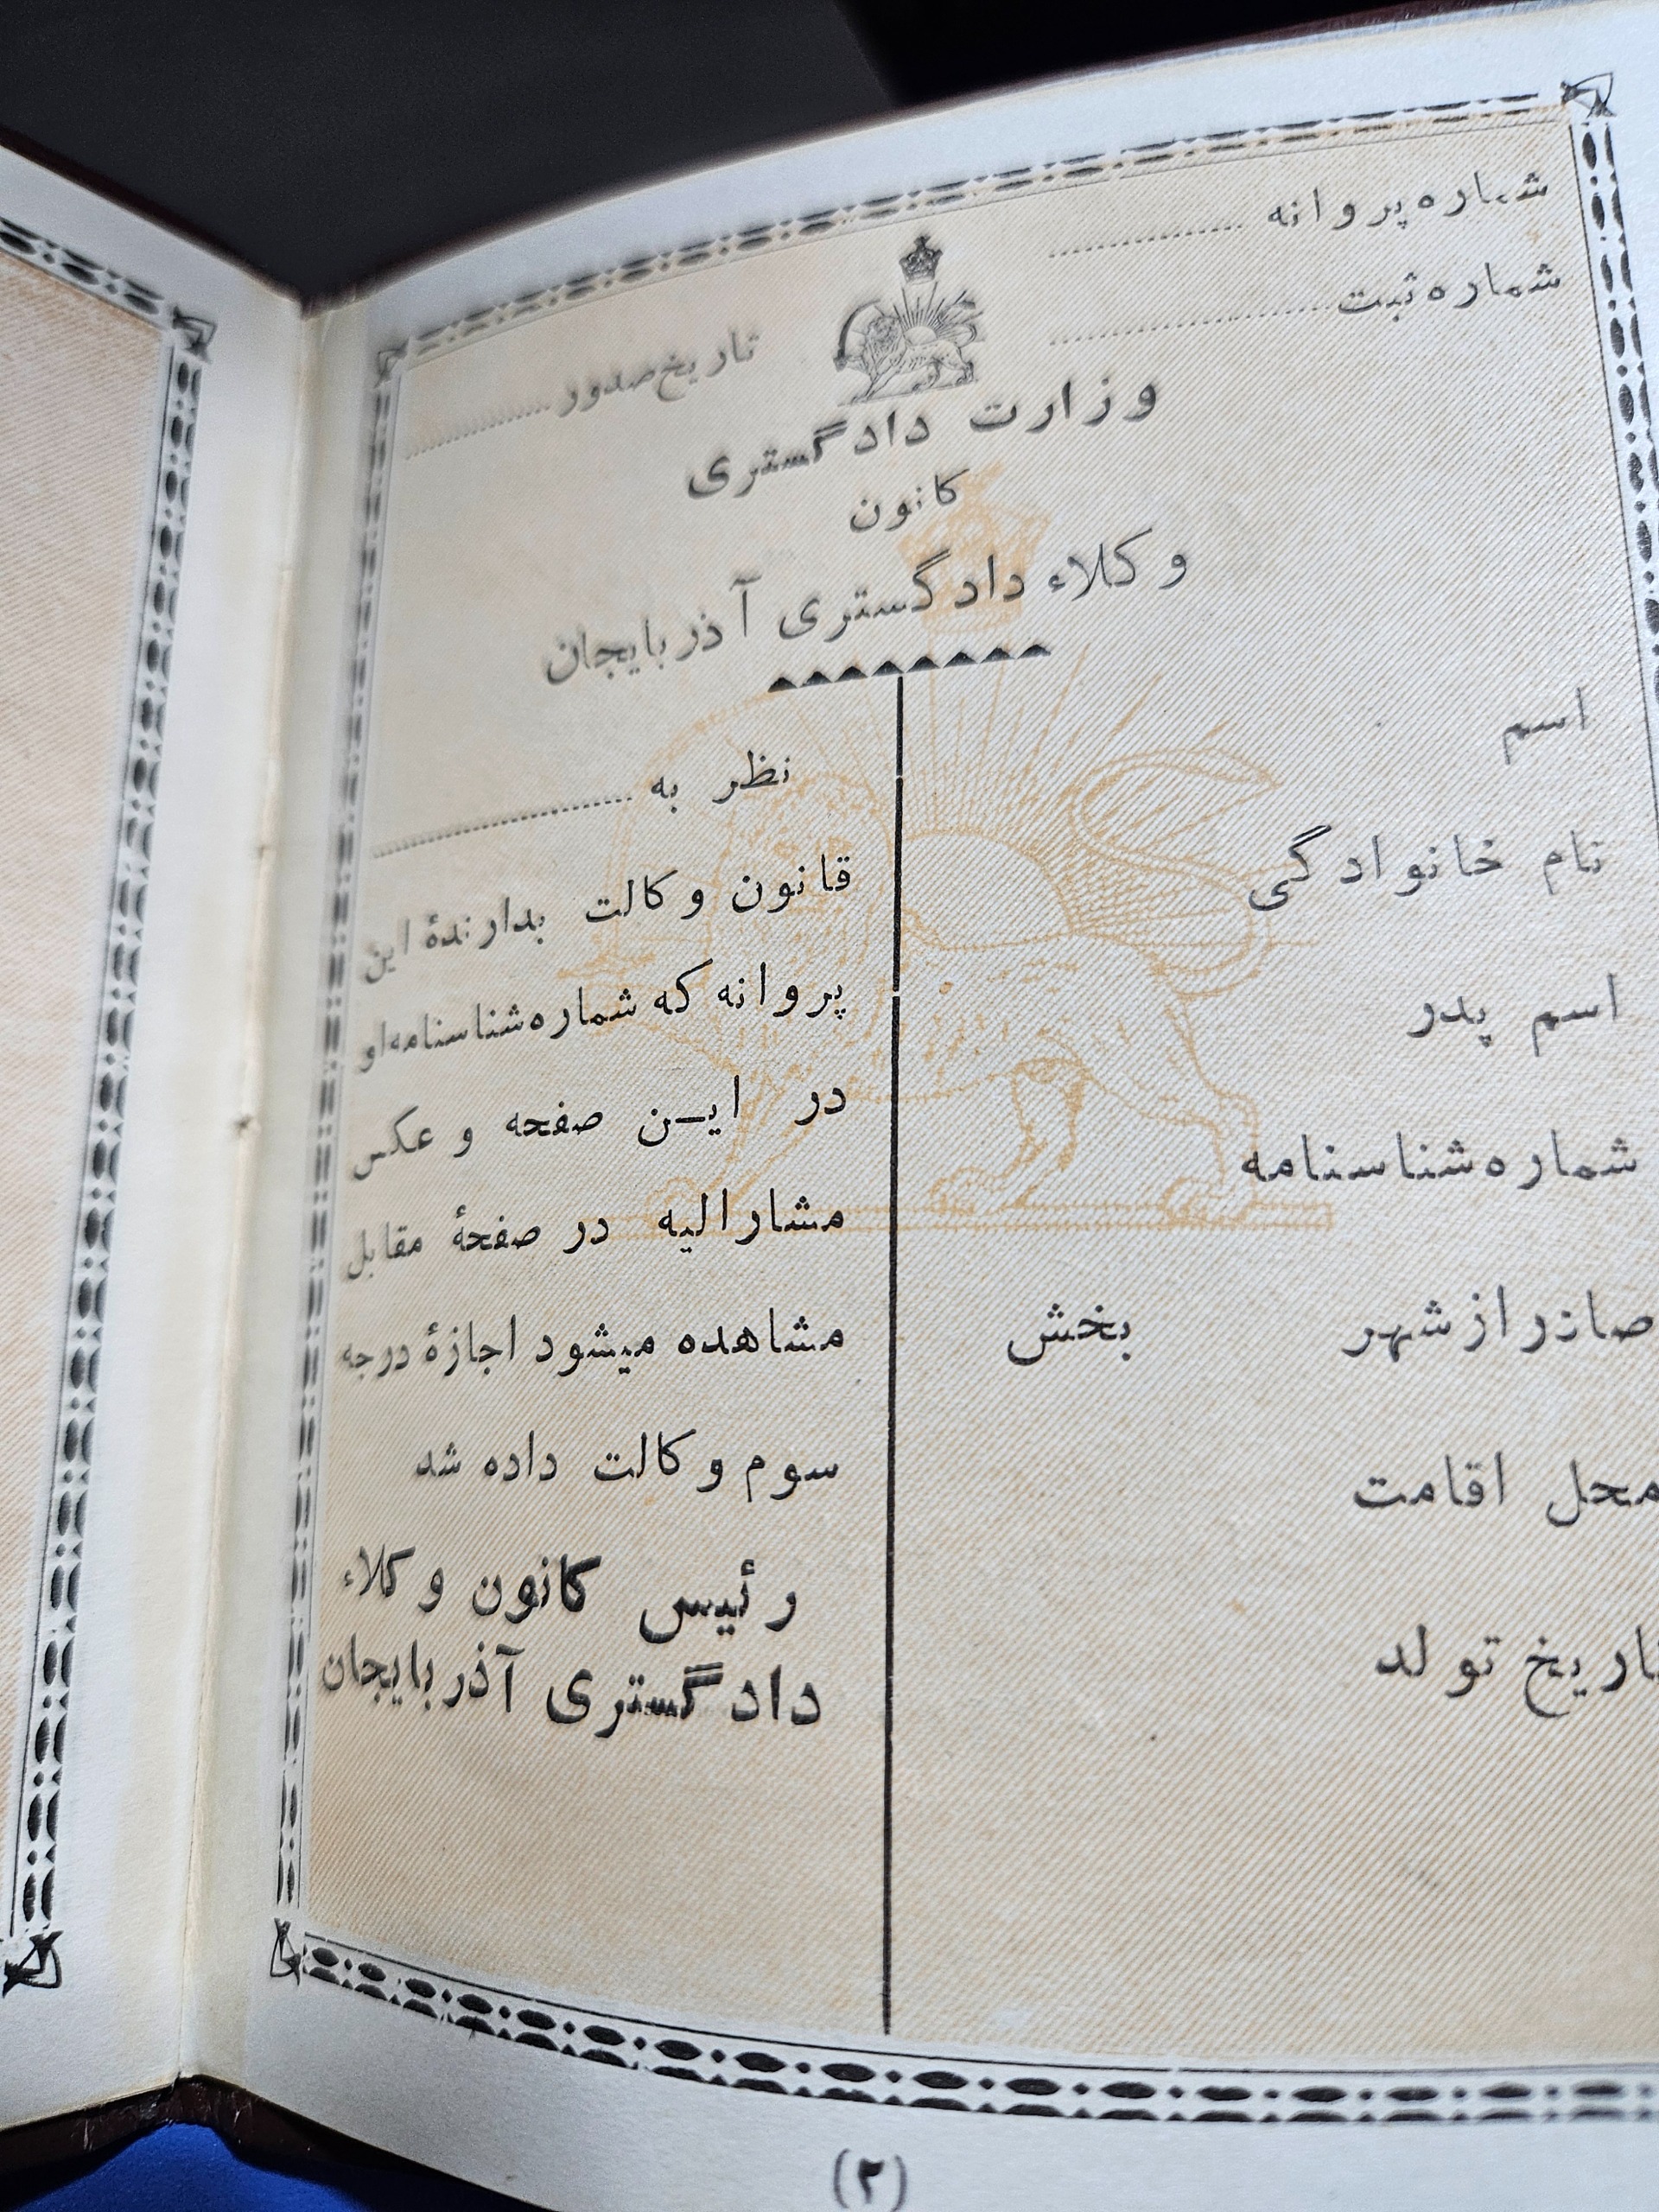 شماره پروانه ....................
شماره ثبت ....................
تاریخ صدور ....................
وزارت دادگستری
کانون
وکلاء دادگستری آذربایجان
اسم
نام خانوادگی
اسم پدر
شماره شناسنامه
صادر از شهر بخش
محل اقامت
تاریخ تولد
نظر به ....................
قانون وکالت بدارندهٔ این
پروانه که شماره شناسنامه او
در ایـن صفحه و عکس
مشارالیه در صفحهٔ مقابل
مشاهده میشود اجازهٔ درجه
سوم وکالت داده شد
رئیس کانون وکلاء
دادگستری آذربایجان
(۲)